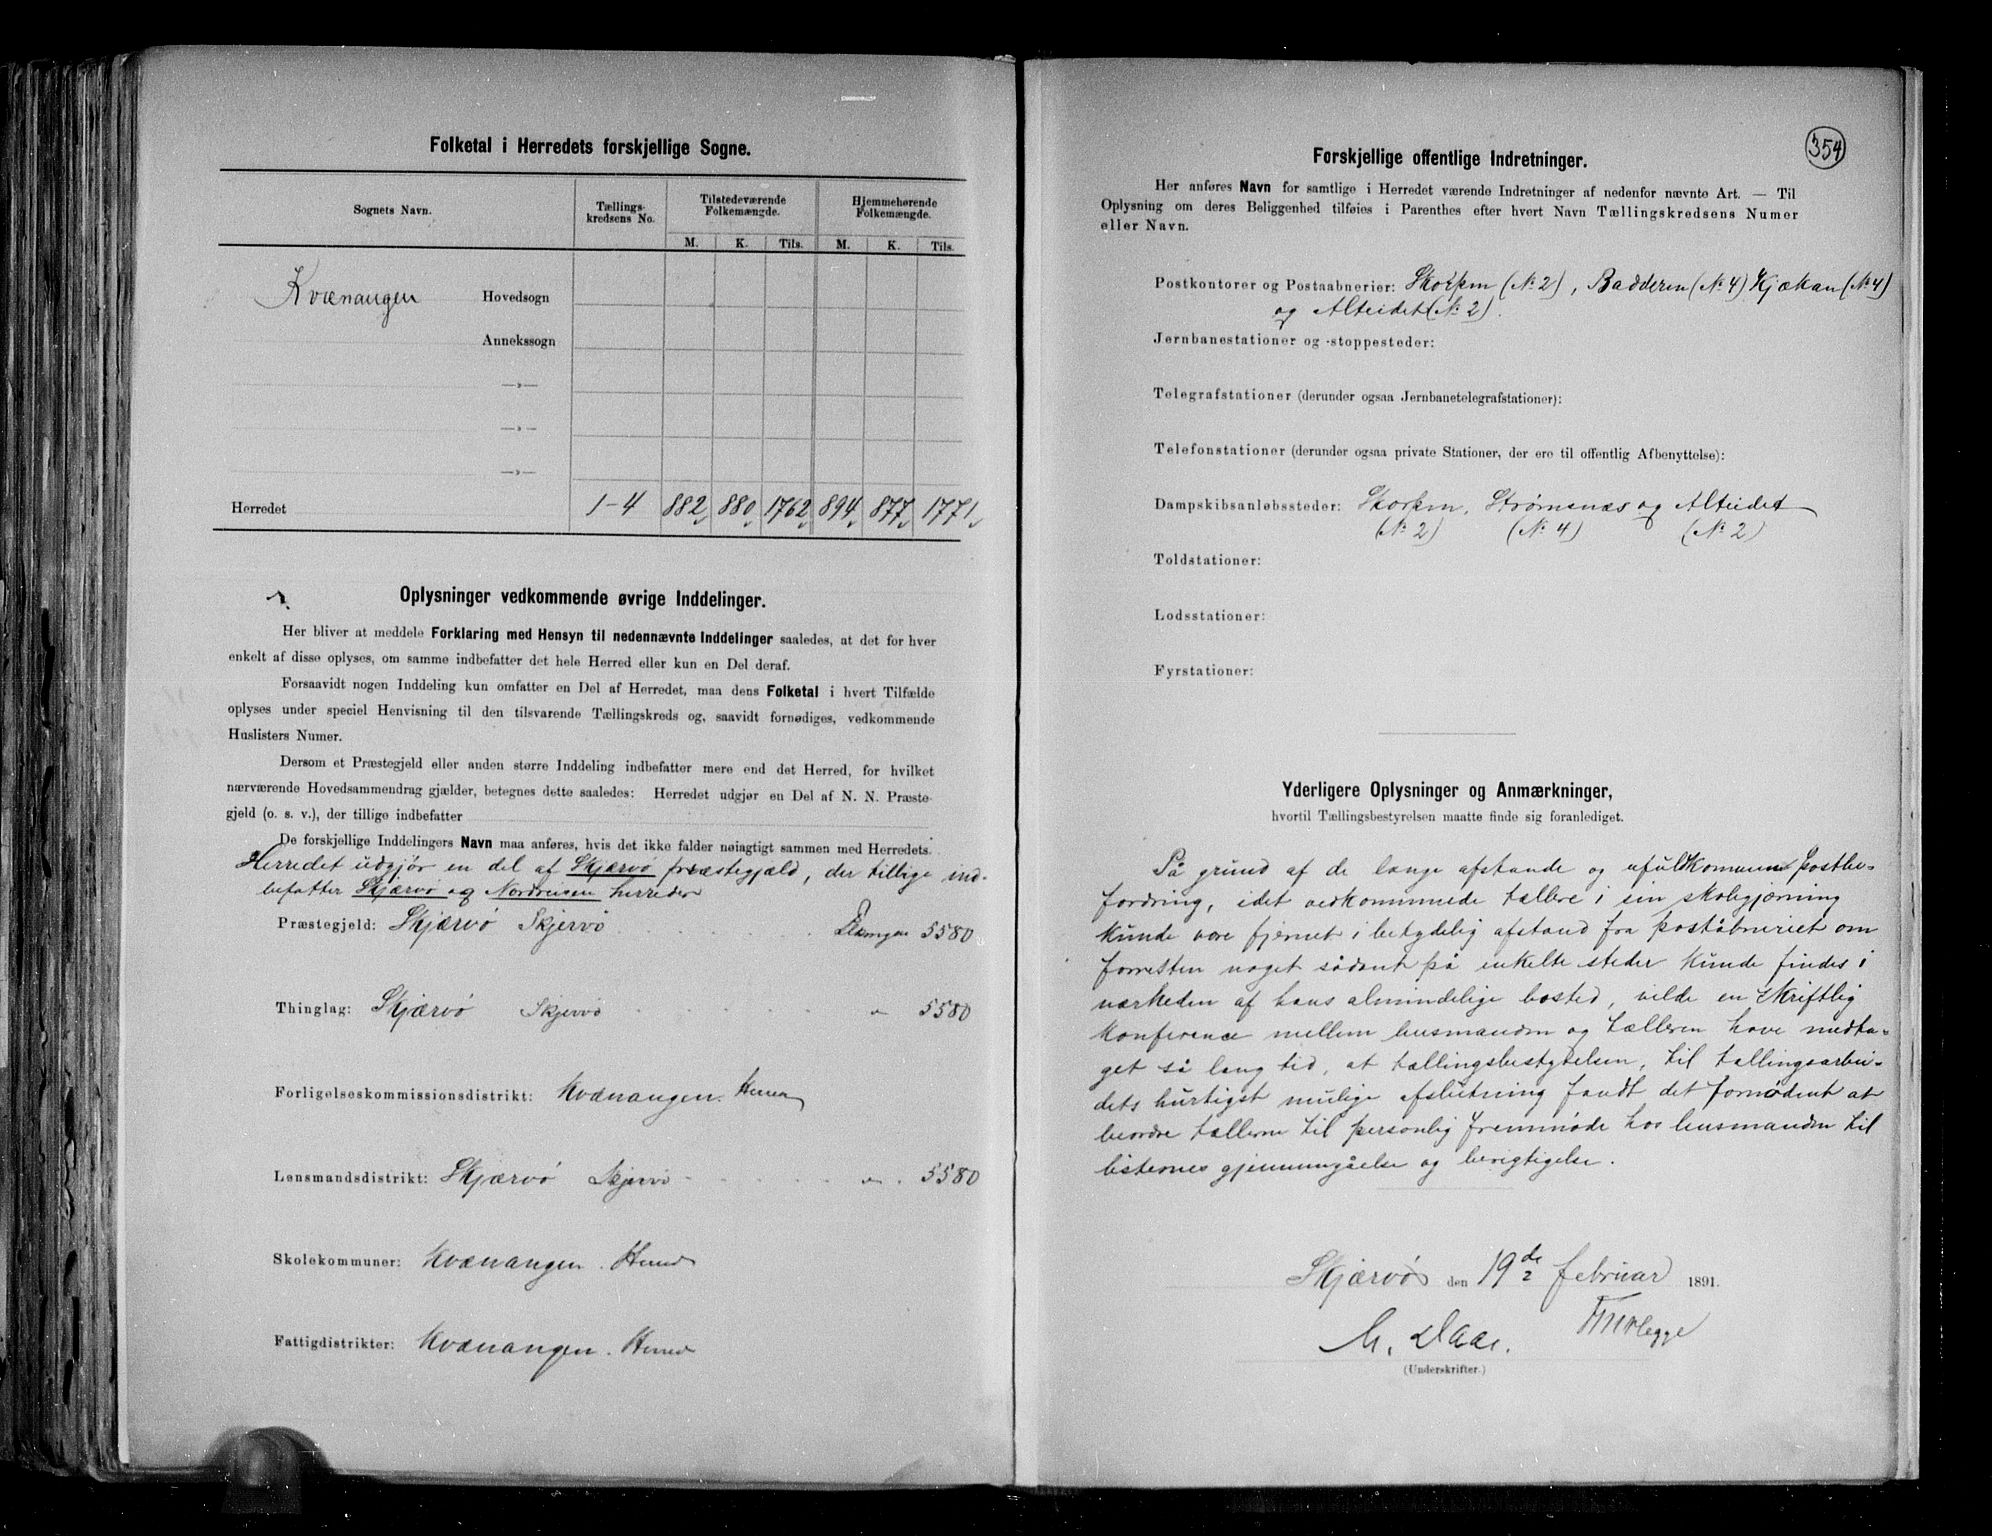 Folketal i Herredets forskjellige Sogne.
Sognets Navn. Tællings-kredsens No. Tilstedeværende Folkemængde. Hjemmehørende Folkemængde.
M. K. Tils. M. K. Tils.
Kvænangen Hovedsogn
Annekssogn
—»—
—»—
—»—
Herredet 1-4 882 880 1762 894 877 1771
Oplysninger vedkommende øvrige Inddelinger.
Her bliver at meddele Forklaring med Hensyn til nedennævnte Inddelinger saaledes, at det for hver
enkelt af disse oplyses, om samme indbefatter det hele Herred eller kun en Del deraf.
Forsaavidt nogen Inddeling kun omfatter en Del af Herredet, maa dens Folketal i hvert Tilfælde
oplyses under speciel Henvisning til den tilsvarende Tællingskreds og, saavidt fornødiges, vedkommende
Huslisters Numer.
Dersom et Præstegjeld eller anden større Inddeling indbefatter mere end det Herred, for hvilket
nærværende Hovedsammendrag gjælder, betegnes dette saaledes: Herredet udgjør en Del af N. N. Præste-
gjeld (o. s. v.), der tillige indbefatter
De forskjellige Inddelingers Navn maa anføres, hvis det ikke falder nøiagtigt sammen med Herredets.
Herredet udgjør en del af Skjærvø præstegjæld, der tillige ind-
befatter Skjærvø og Nordreisen herreder
Præstegjeld: Skjærvø Skjervø 5580
Thinglag: Skjærvø Skjervø " 5580
Forligelseskommissionsdistrikt: Kvænangen. Herred
Lensmandsdistrikt: Skjærvø Skjervø " 5580
Skolekommuner: Kvænangen. Herred
Fattigdistrikter: Kvænangen. Herred
354
Forskjellige offentlige Indretninger.
Her anføres Navn for samtlige i Herredet værende Indretninger af nedenfor nævnte Art. — Til
Oplysning om deres Beliggenhed tilføies i Parenthes efter hvert Navn Tællingskredsens Numer
eller Navn.
Postkontorer og Postaabnerier: Skorpen (No 2), Badderen (No 4) Kjækan (No 4)
og Alteidet (No 2).
Jernbanestationer og -stoppesteder:
Telegrafstationer (derunder ogsaa Jernbanetelegrafstationer):
Telefonstationer (derunder ogsaa private Stationer, der ere til offentlig Afbenyttelse):
Dampskibsanløbssteder: Skorpen, Strømsnæs og Alteidet
(No 2) (No 4) (No 2)
Toldstationer:
Lodsstationer:
Fyrstationer:
Yderligere Oplysninger og Anmærkninger,
hvortil Tællingsbestyrelsen maatte finde sig foranlediget.
På grund af de lange afstande og ufuldkommen postbe-
fordring, idet vedkommende tællere i sin skolegjørning
kunde være fjernet i betydelig afstand fra poståbneriet om
forresten noget sådant på enkelte steder kunde findes i
nærheden af hans almindelige bosted, vilde en skriftlig
konference mellem husmanden og tælleren have medta-
get så lang tid, at tællingsbestyrelsen, til tællingsarbei-
dets hurtigst mulige afslutning fandt det fornødent at
beordre tællerne til personlig fremmøde hos lensmanden til
listernes gjennemgåelse og berigtigelse.
Skjærvø den 19de februar 1891.
2
M. Daae.
(Underskrifter.)